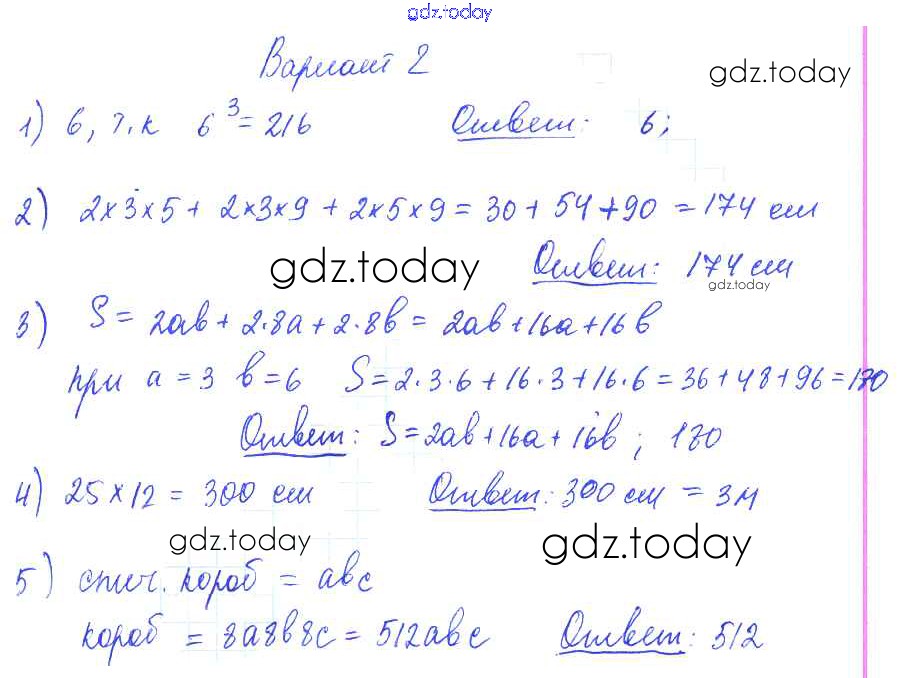 gdz.today
Вариант 2
gdz.today
1) 6, т.к 6³ = 216 Ответ: 6;
2) 2×3×5 + 2×3×9 + 2×5×9 = 30 + 54 + 90 = 174 см
gdz.today Ответ: 174 см
gdz.today
3) S = 2ab + 2·8a + 2·8b = 2ab + 16a + 16b
при a = 3 b = 6 S = 2·3·6 + 16·3 + 16·6 = 36 + 48 + 96 = 180
Ответ: S = 2ab + 16a + 16b ; 180
4) 25 × 12 = 300 см Ответ: 300 см = 3м
gdz.today gdz.today
5) спич. короб = abc
короб = 8a8b8c = 512abc Ответ: 512